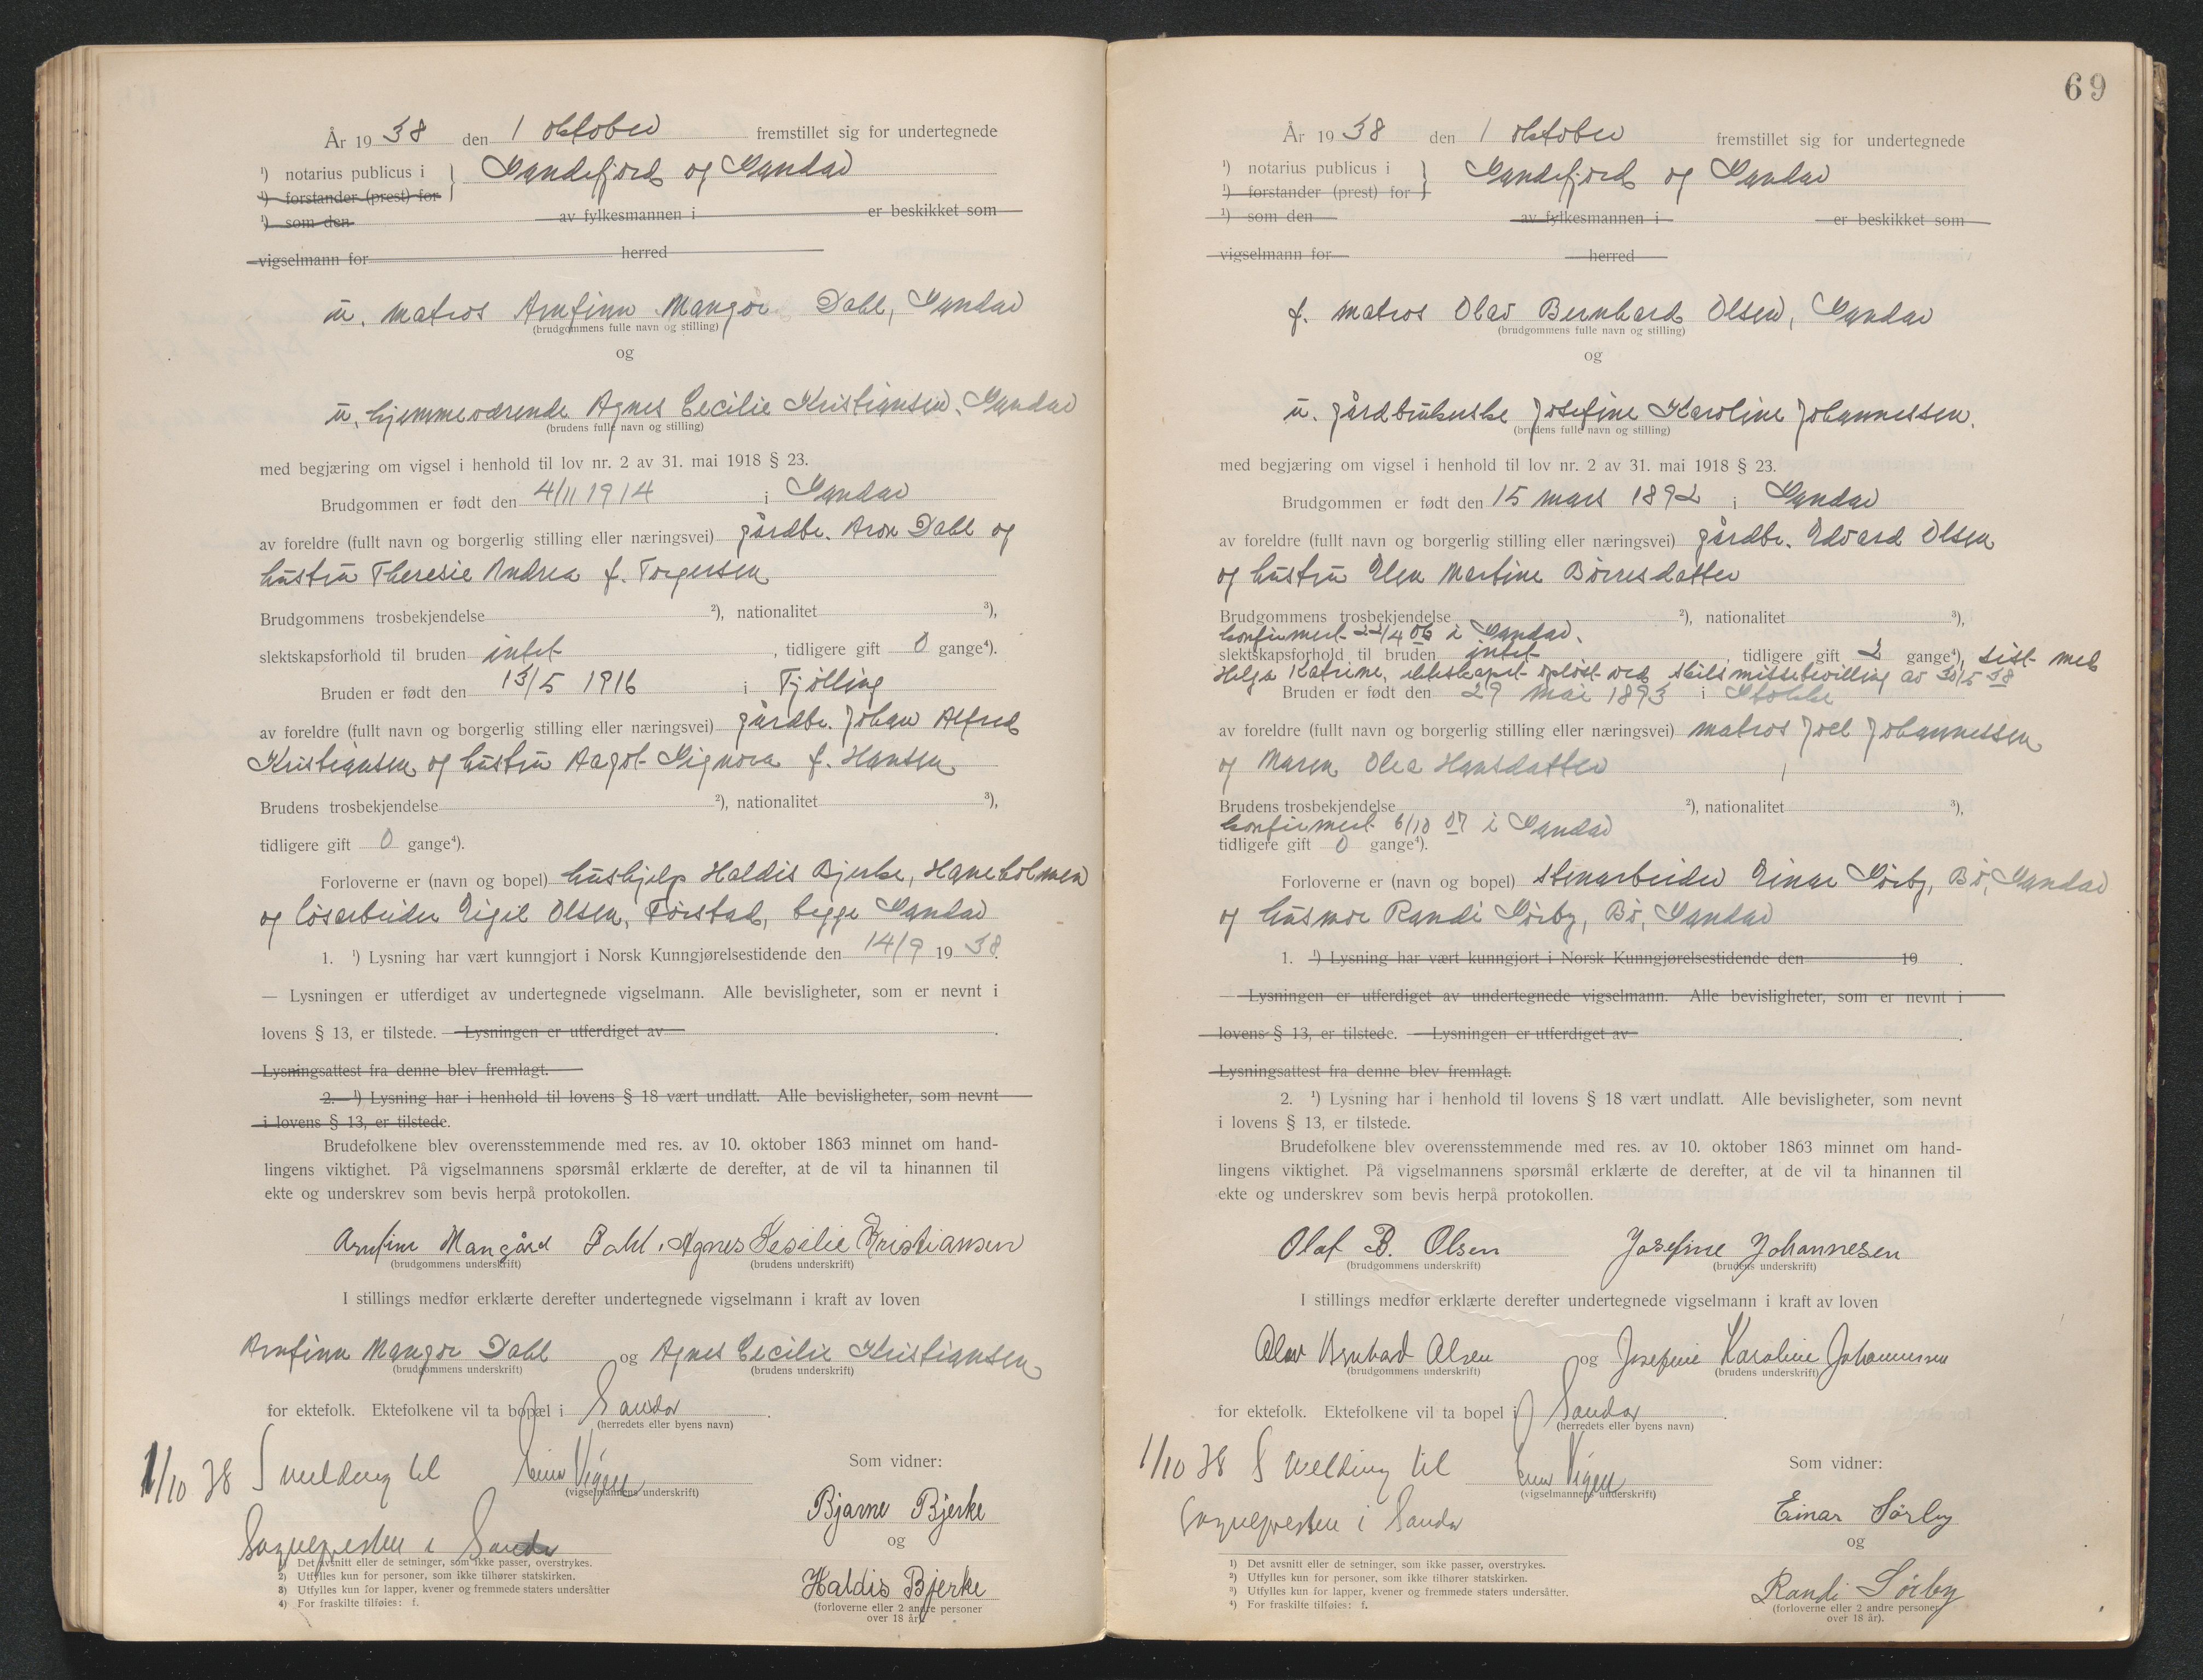 År 1938 den 1 oktober fremstillet sig for undertegnede
¹) notarius publicus i } Sandefjord og Sandar
¹) forstander (prest) for
¹) som den av fylkesmannen i er beskikket som
vigselmann for herred
u. matros Arnfinn Mangor Dahl, Sandar
(brudgommens fulle navn og stilling)
og
u. hjemmeværende Agnes Cecilie Kristiansen, Sandar
(brudens fulle navn og stilling)
med begjæring om vigsel i henhold til lov nr. 2 av 31. mai 1918 § 23.
Brudgommen er født den 4/11 1914 i Sandar
av foreldre (fullt navn og borgerlig stilling eller næringsvei) gårdbr. Aron Dahl og
hustru Theresie Andrea f. Torgersen
Brudgommens trosbekjendelse ²), nationalitet ³),
slektskapsforhold til bruden intet, tidligere gift 0 gange⁴).
Bruden er født den 13/5 1916 i Tjølling
av foreldre (fullt navn og borgerlig stilling eller næringsvei) gårdbr. Johan Alfred
Kristiansen og hustru Aagot Signora f. Hansen
Brudens trosbekjendelse ²), nationalitet ³),
tidligere gift 0 gange⁴).
Forloverne er (navn og bopel) hushjelp Haldis Bjerke, Haneholmen
og løsarbeider Eigil Olsen, Førstad, begge Sandar
1. ¹) Lysning har vært kunngjort i Norsk Kunngjørelsestidende den 14/9 1938.
— Lysningen er utferdiget av undertegnede vigselmann. Alle bevisligheter, som er nevnt i
lovens § 13, er tilstede. — Lysningen er utferdiget av .
Lysningsattest fra denne blev fremlagt.
2. ¹) Lysning har i henhold til lovens § 18 vært undlatt. Alle bevisligheter, som nevnt
i lovens § 13, er tilstede.
Brudefolkene blev overensstemmende med res. av 10. oktober 1863 minnet om hand-
lingens viktighet. På vigselmannens spørsmål erklærte de derefter, at de vil ta hinannen til
ekte og underskrev som bevis herpå protokollen.
Arnfinn Mangård Dahl. Agnes Sesilie Kristiansen
(brudgommens underskrift) (brudens underskrift)
I stillings medfør erklærte derefter undertegnede vigselmann i kraft av loven
Arnfinn Mangor Dahl og Agnes Cecilie Kristiansen
(brudgommens underskrift) (brudens underskrift)
for ektefolk. Ektefolkene vil ta bopæl i Sandar.
(herredets eller byens navn)
1/10 38 S melding til
(vigselmannens underskrift)
Sognepresten i Sandar
Som vidner:
Bjarne Bjerke
og
Haldis Bjerke
(forloverne eller 2 andre personer
over 18 år).
¹) Det avsnitt eller de setninger, som ikke passer, overstrykes.
2) Utfylles kun for personer, som ikke tilhører statskirken.
3) Utfylles kun for lapper, kvener og fremmede staters undersåtter
4) For fraskilte tilføies: f.
69
År 1938 den 1 oktober fremstillet sig for undertegnede
¹) notarius publicus i } Sandefjord og Sandar
¹) forstander (prest) for
¹) som den av fylkesmannen i er beskikket som
vigselmann for herred
f. matros Olav Bernhard Olsen, Sandar
(brudgommens fulle navn og stilling)
og
u. gårdbrukerske Josefine Karoline Johannessen.
(brudens fulle navn og stilling)
med begjæring om vigsel i henhold til lov nr. 2 av 31. mai 1918 § 23.
Brudgommen er født den 15 mars 1892 i Sandar
av foreldre (fullt navn og borgerlig stilling eller næringsvei) gårdbr. Edvard Olsen
og hustru Elen Martine Børresdatter
Brudgommens trosbekjendelse ²), nationalitet ³),
konfirmert 22/4 06 i Sandar.
slektskapsforhold til bruden intet, tidligere gift 2 gange⁴), sist med
Helga Katrine, ekteskapet opløst ved skilsmissebevilling av 30/5 38
Bruden er født den 29 mai 1893 i Stokke
av foreldre (fullt navn og borgerlig stilling eller næringsvei) matros Joel Johannessen
og Maren Olea Hansdatter
Brudens trosbekjendelse ²), nationalitet ³),
konfirmert 6/10 07 i Sandar
tidligere gift 0 gange⁴).
Forloverne er (navn og bopel) stenarbeider Einar Sørby, Bø, Sandar
og husmor Randi Sørby, Bø, Sandar
1. ¹) Lysning har vært kunngjort i Norsk Kunngjørelsestidende den 19 .
— Lysningen er utferdiget av undertegnede vigselmann. Alle bevisligheter, som er nevnt i
lovens § 13, er tilstede. — Lysningen er utferdiget av .
Lysningsattest fra denne blev fremlagt.
2. ¹) Lysning har i henhold til lovens § 18 vært undlatt. Alle bevisligheter, som nevnt
i lovens § 13, er tilstede.
Brudefolkene blev overensstemmende med res. av 10. oktober 1863 minnet om hand-
lingens viktighet. På vigselmannens spørsmål erklærte de derefter, at de vil ta hinannen til
ekte og underskrev som bevis herpå protokollen.
Olaf B. Olsen Josefine Johannesen
(brudgommens underskrift) (brudens underskrift)
I stillings medfør erklærte derefter undertegnede vigselmann i kraft av loven
Olav Bernhard Olsen og Josefine Karoline Johannessen
(brudgommens underskrift) (brudens underskrift)
for ektefolk. Ektefolkene vil ta bopel i Sandar.
(herredets eller byens navn)
1/10 38 S Melding til
(vigselmannens underskrift)
Sognepresten i Sandar
Som vidner:
Einar Sørby
og
Randi Sørby
(forloverne eller 2 andre personer
over 18 år).
1) Det avsnitt eller de setninger, som ikke passer, overstrykes.
²) Utfylles kun for personer, som ikke tilhører statskirken.
³) Utfylles kun for lapper, kvener og fremmede staters undersåtter.
⁴) For fraskilte tilføies: f.